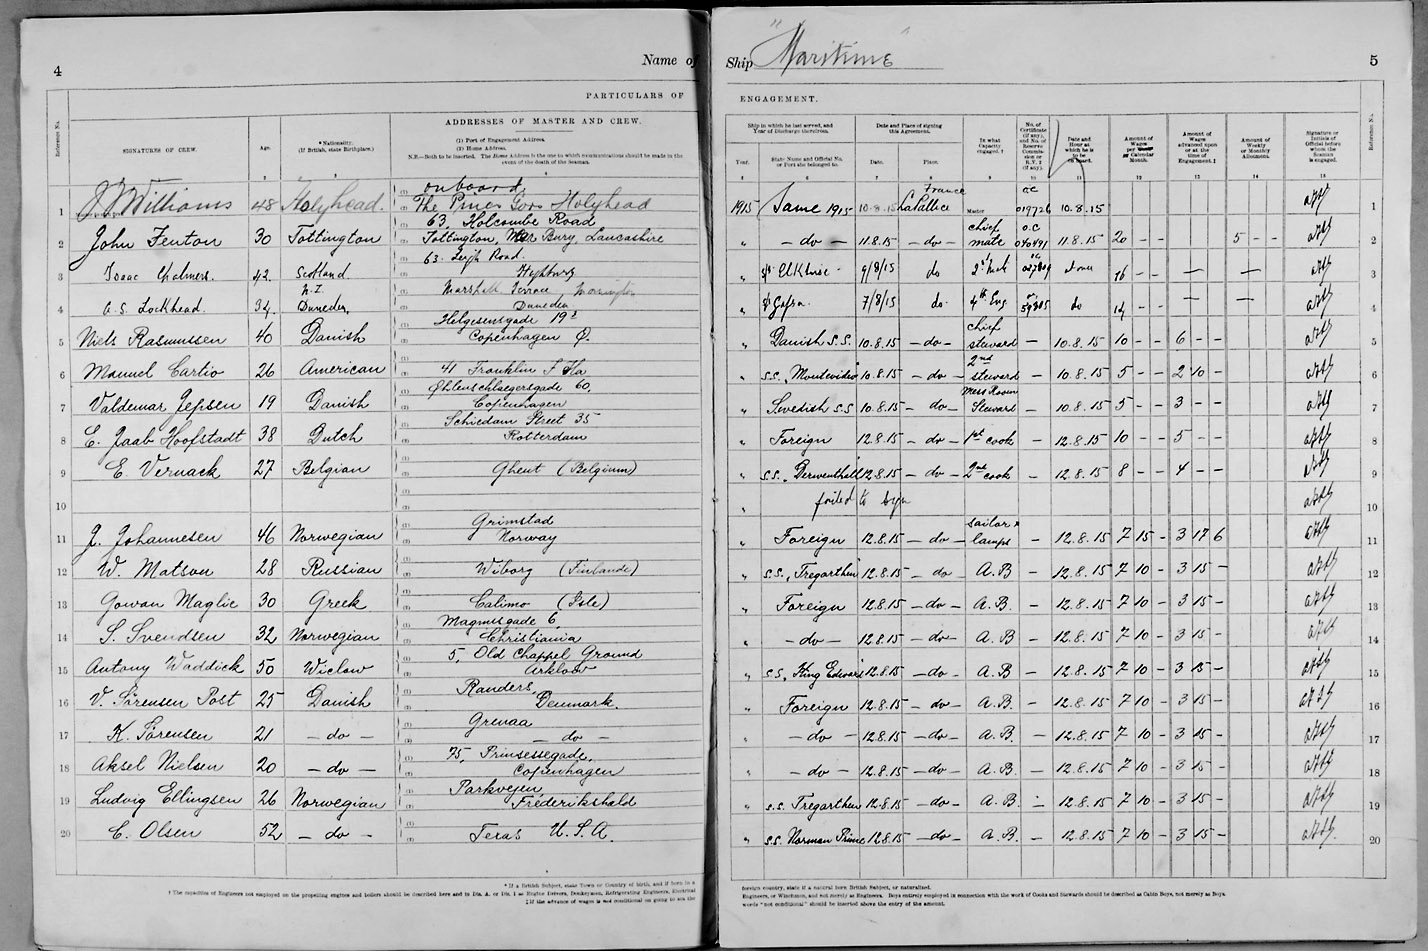 4
Name of
PARTICULARS OF
Reference No.
SIGNATURES OF CREW.
Age.
*Nationality.
(If British, state Birthplace.)
ADDRESSES OF MASTER AND CREW.
(1) Port of Engagement Address.
(2) Home Address.
N.B.—Both to be inserted. The Home Address is the one to which communications should be made in the
event of the death of the Seaman.
1 Williams 48 Holyhead. on board
The Pines Gors Holyhead
2 John Fenton 30 Tottington 63, Holcombe Road
Tottington, Bury, Lancashire
3 Isaac Chalmers. 42. Scotland 63. Leigh Road.
Highbury
4 A. S. Lockhead. 34. N.Z. Dunedin, Marshall Terrace, Mornington
Dunedin
5 Niels Rasmussen 40 Danish Helgesensgade 19
Copenhagen Ø.
6 Manuel Cartio 26 American 41 Franklin
7 Valdemar Jepsen 19 Danish Øhlenschlaegersgade 60,
Copenhagen
8 E. Jaab Hoofstadt 38 Dutch Schiedam Street 35
Rotterdam
9 E. Vernack 27 Belgian Ghent (Belgium)
10
11 J. Johannesen 46 Norwegian Grimstad
Norway
12 W. Matson 28 Russian Wiborg (Finlande)
13 Gowan Maglie 30 Greek Calimo (Isle)
14 S. Svendsen 32 Norwegian Magnusgade 6,
Christiania
15 Antony Waddick 50 Wiclow 5, Old Chappel Ground
Arklow
16 V. Sørensen Post 25 Danish Randers,
Denmark.
17 K. Sørensen 21 — do — Grenaa
— do —
18 Aksel Nielsen 20 — do — 75, Prinsessegade,
Copenhagen
19 Ludvig Ellingsen 26 Norwegian Parkvejen
Frederikshald
20 C. Olsen 52 — do — Texas U.S.A.
* If a British Subject, state Town or Country of birth, and if born in a
† The capacities of Engineers not employed on the propelling engines and boilers should be described here and in Dis. A. or Dis. 1 as Engine Drivers, Donkeymen, Refrigerating Engineers, Electrical
‡ If the advance of wages is not conditional on going to sea the
Ship "Maritime"
5
ENGAGEMENT.
Ship in which he last served, and
Year of Discharge therefrom.
Year.
State Name and Official No.
or Port she belonged to.
Date and Place of signing
this Agreement.
Date.
Place.
In what
Capacity
engaged. †
No. of
Certificate
(if any),
and No. of
Reserve
Commis-
sion or
R.V. 2
(if any).
Date and
Hour at
which he is
to be
on board.
Amount of
Wages
per Calendar
Month.
Amount of
Wages
advanced upon
or at the
time of
Engagement.‡
Amount of
Weekly
or Monthly
Allotment.
Signature or
Initials of
Official before
whom the
Seaman
is engaged.
Reference No.
1915 Same 1915 10.8.15 La Pallice France Master O.C. 019726 10.8.15 1
" — do — 11.8.15 — do — Chief mate O.C. 11.8.15 20 — — 5 — — 2
" 9/8/15 do 2nd Mate 16 — — — — 3
" Gafra 7/8/15 do 4th Eng do 14 — — — — 4
" Danish S.S. 10.8.15 — do — Chief steward — 10.8.15 10 — — 6 — — 5
" S.S. "Montevideo" 10.8.15 — do — 2nd steward — 10.8.15 5 — — 2 10 — 6
" Swedish S.S 10.8.15 — do — Mess Room Steward — 10.8.15 5 — — 3 — — 7
" Foreign 12.8.15 — do — 1st cook — 12.8.15 10 — — 5 — — 8
" S.S. "Derwenthall" 12.8.15 — do — 2nd cook — 12.8.15 8 — — 4 — — 9
" failed to sign 10
" Foreign 12.8.15 — do — sailor & lamps — 12.8.15 7 15 — 3 17 6 11
" S.S. "Tregarthen" 12.8.15 — do — A.B — 12.8.15 7 10 — 3 15 — 12
" Foreign 12.8.15 — do — A.B. — 12.8.15 7 10 — 3 15 — 13
" — do — 12.8.15 — do — A.B — 12.8.15 7 10 — 3 15 — 14
" S.S. "King Edward" 12.8.15 — do — A.B — 12.8.15 7 10 — 3 15 — 15
" Foreign 12.8.15 — do — A.B. — 12.8.15 7 10 — 3 15 — 16
" — do — 12.8.15 — do — A.B. — 12.8.15 7 10 — 3 15 — 17
" — do — 12.8.15 — do — A.B. — 12.8.15 7 10 — 3 15 — 18
" S.S. Tregarthen 12.8.15 — do — A.B. — 12.8.15 7 10 — 3 15 — 19
" S.S. Norman Prince 12.8.15 — do — A.B. — 12.8.15 7 10 — 3 15 — 20
foreign country, state if a natural born British Subject, or naturalized.
Engineers, or Winchmen, and not merely as Engineers. Boys entirely employed in connection with the work of Cooks and Stewards should be described as Cabin Boys, not merely as Boys.
words "not conditional" should be inserted above the entry of the amount.